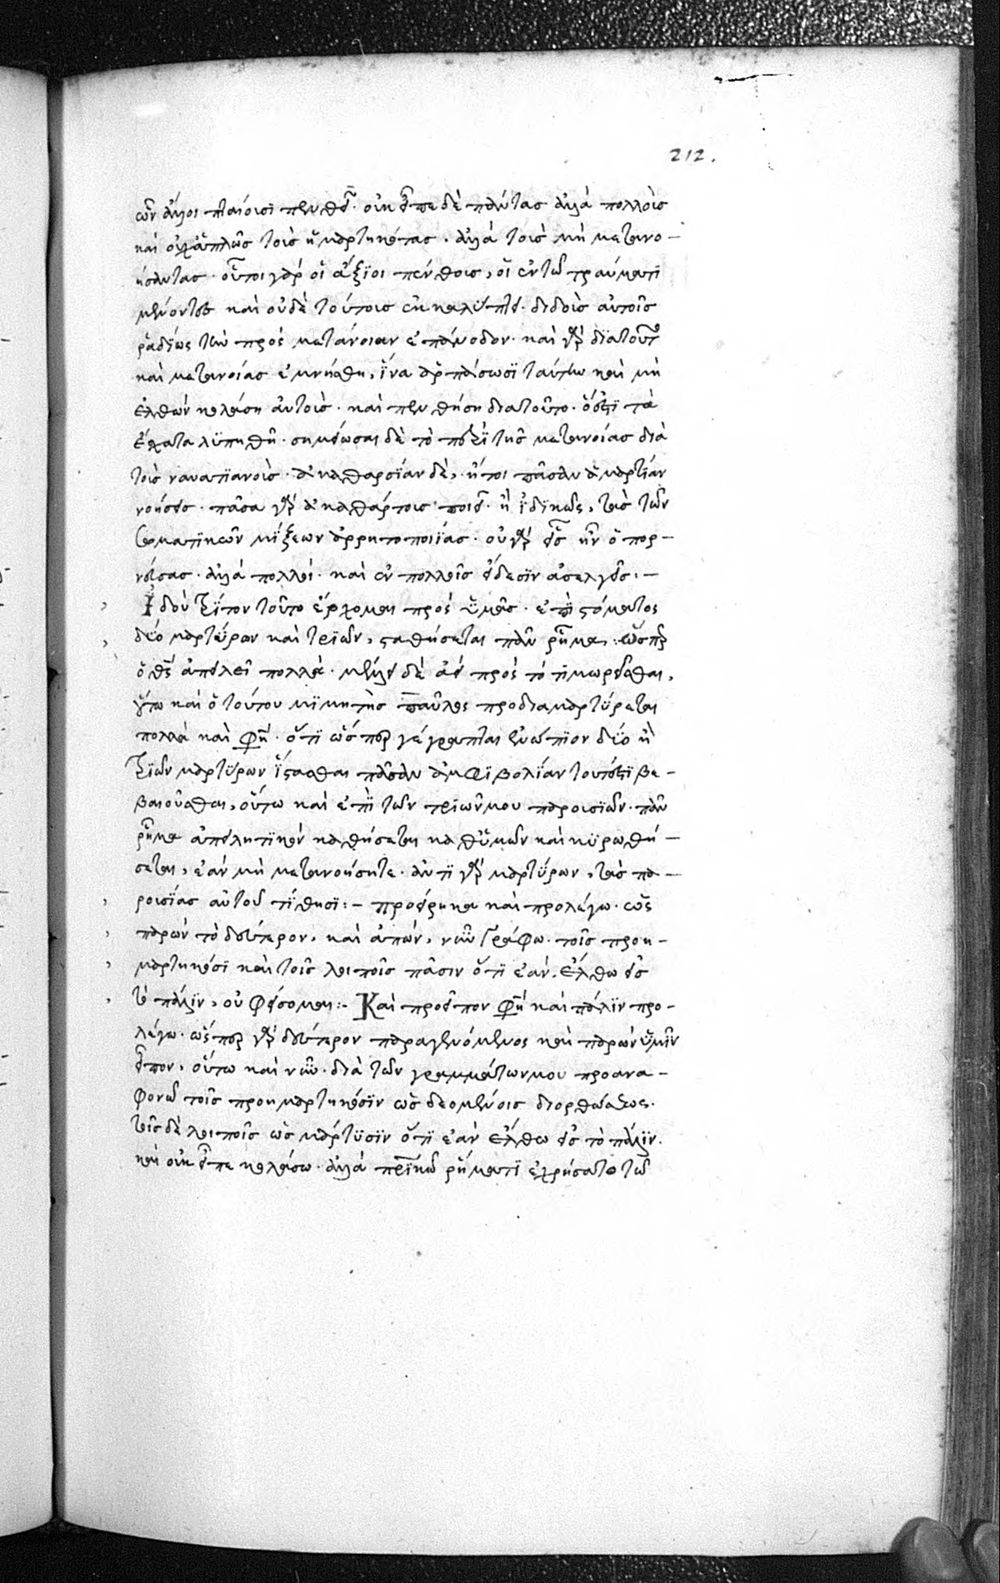 212.
ὧν ἄλλοι πταίουσϊ πενθεῖ· οὐκ εἶπε δὲ πάντας ἀλλὰ πολλοὺς
καὶ οὐχ ἁπλῶς τοὺς ἡμαρτηκότας. ἀλλὰ τοὺς μὴ μετανο-
ήσαντας· οὗτοι γὰρ οἱ ἄξϊοι πένθους, οἱ ἐν τῶ τραύματϊ
μένοντες καὶ οὐδὲ τούτους ἐκκαλύπτει· διδοὺς αὐτοῖς
ῥαδίως τὴν πρὸς μετάνοιαν ἐπάνοδον· καὶ γὰρ διατοῦτο
καὶ μετανοίας ἐμνήσθη, ἵνα ἁρπάσωσϊ ταύτην καὶ μὴ
ἐλθὼν κολάση αὐτοὺς· καὶ πενθήση διατοῦτο· ὅ ἐστϊ τὰ
ἔσχατα λϋπηθῆ· σημείωσαι δὲ τὸ περὶ τῆς μετανοίας διὰ
τοὺς ναυατϊανοὺς· ἀκαθαρσίαν δὲ, ἤτοι πᾶσαν ἁμαρτίαν
νοήσεις· πᾶσα γὰρ ἀκαθάρτους ποιεῖ· ἢ ἰδϊκῶς, τὰς τῶν
σωματϊκῶν μίξεων ἀρρητοποιΐας· οὐ γὰρ εἷς ἦν ὁ πορ-
νεύσας· ἀλλὰ πολλοί· καὶ ἐν πολλοῖς εἴδεσϊν ἀσελγείας:-
Ἰδοὺ τρίτον τοῦτο ἔρχομαι πρὸς ὑμᾶς· ἐπὶ στόματος
δύο μαρτύρων καὶ τριῶν, σταθήσεται πᾶν ῥῆμα. ὥσπερ
ὁ θεὸς ἀπειλεῖ πολλά· μέλλει δὲ ἀεὶ πρὸς τὸ τϊμωρεῖσθαι,
οὕτω καὶ ὁ τούτου μϊμητὴς παῦλος προδιαμαρτύρεται
πολλὰ καὶ φησὶ· ὅτι ὥσπερ γέγραπται ἐνώπϊον δύο ἢ
τριῶν μαρτύρων ἵστασθαι πᾶσαν ἀμφϊβολίαν τουτέστϊ βε-
βαιοῦσθαι, οὕτω καὶ ἐπὶ τῶν τριῶν μου παρουσϊῶν· πᾶν
ῥῆμα ἀπειλητϊκὸν καθήσεται καθ ὑμῶν καὶ κϋρωθή-
σεται, ἐὰν μὴ μετανοήσητε· ἀντὶ γὰρ μαρτύρων, τὰς πα-
ρουσίας αὐτοῦ τίθησϊ:- προείρηκα καὶ προλέγω· ὡς
παρὼν τὸ δεύτερον, καὶ ἀπὼν, νῦν γράφω· τοῖς προη-
μαρτηκόσϊ καὶ τοῖς λοιποῖς πᾶσιν ὅτϊ ἐὰν ἔλθω εἰς
τὸ πάλϊν, οὐ φείσομαι:- Καὶ προεῖπον φησὶ καὶ πάλϊν προ-
λέγω· ὥσπερ γὰρ δεύτερον παραγενόμενος καὶ παρὼν ὑμῖν
εἶπον, οὕτω καὶ νῦν· διὰ τῶν γραμμάτων μου προανα-
φονῶ τοῖς προημαρτηκόσϊν ὡς δεομένοις διορθώσεως·
τοῖς δὲ λοιποῖς ὡς μάρτϋσϊν ὅτϊ ἐὰν ἔλθω εἰς τὸ πάλϊν·
καὶ οὐκ εἶπε κολάσω· ἀλλὰ πατρϊκῶ ῥήματϊ ἐχρήσατο τῶ